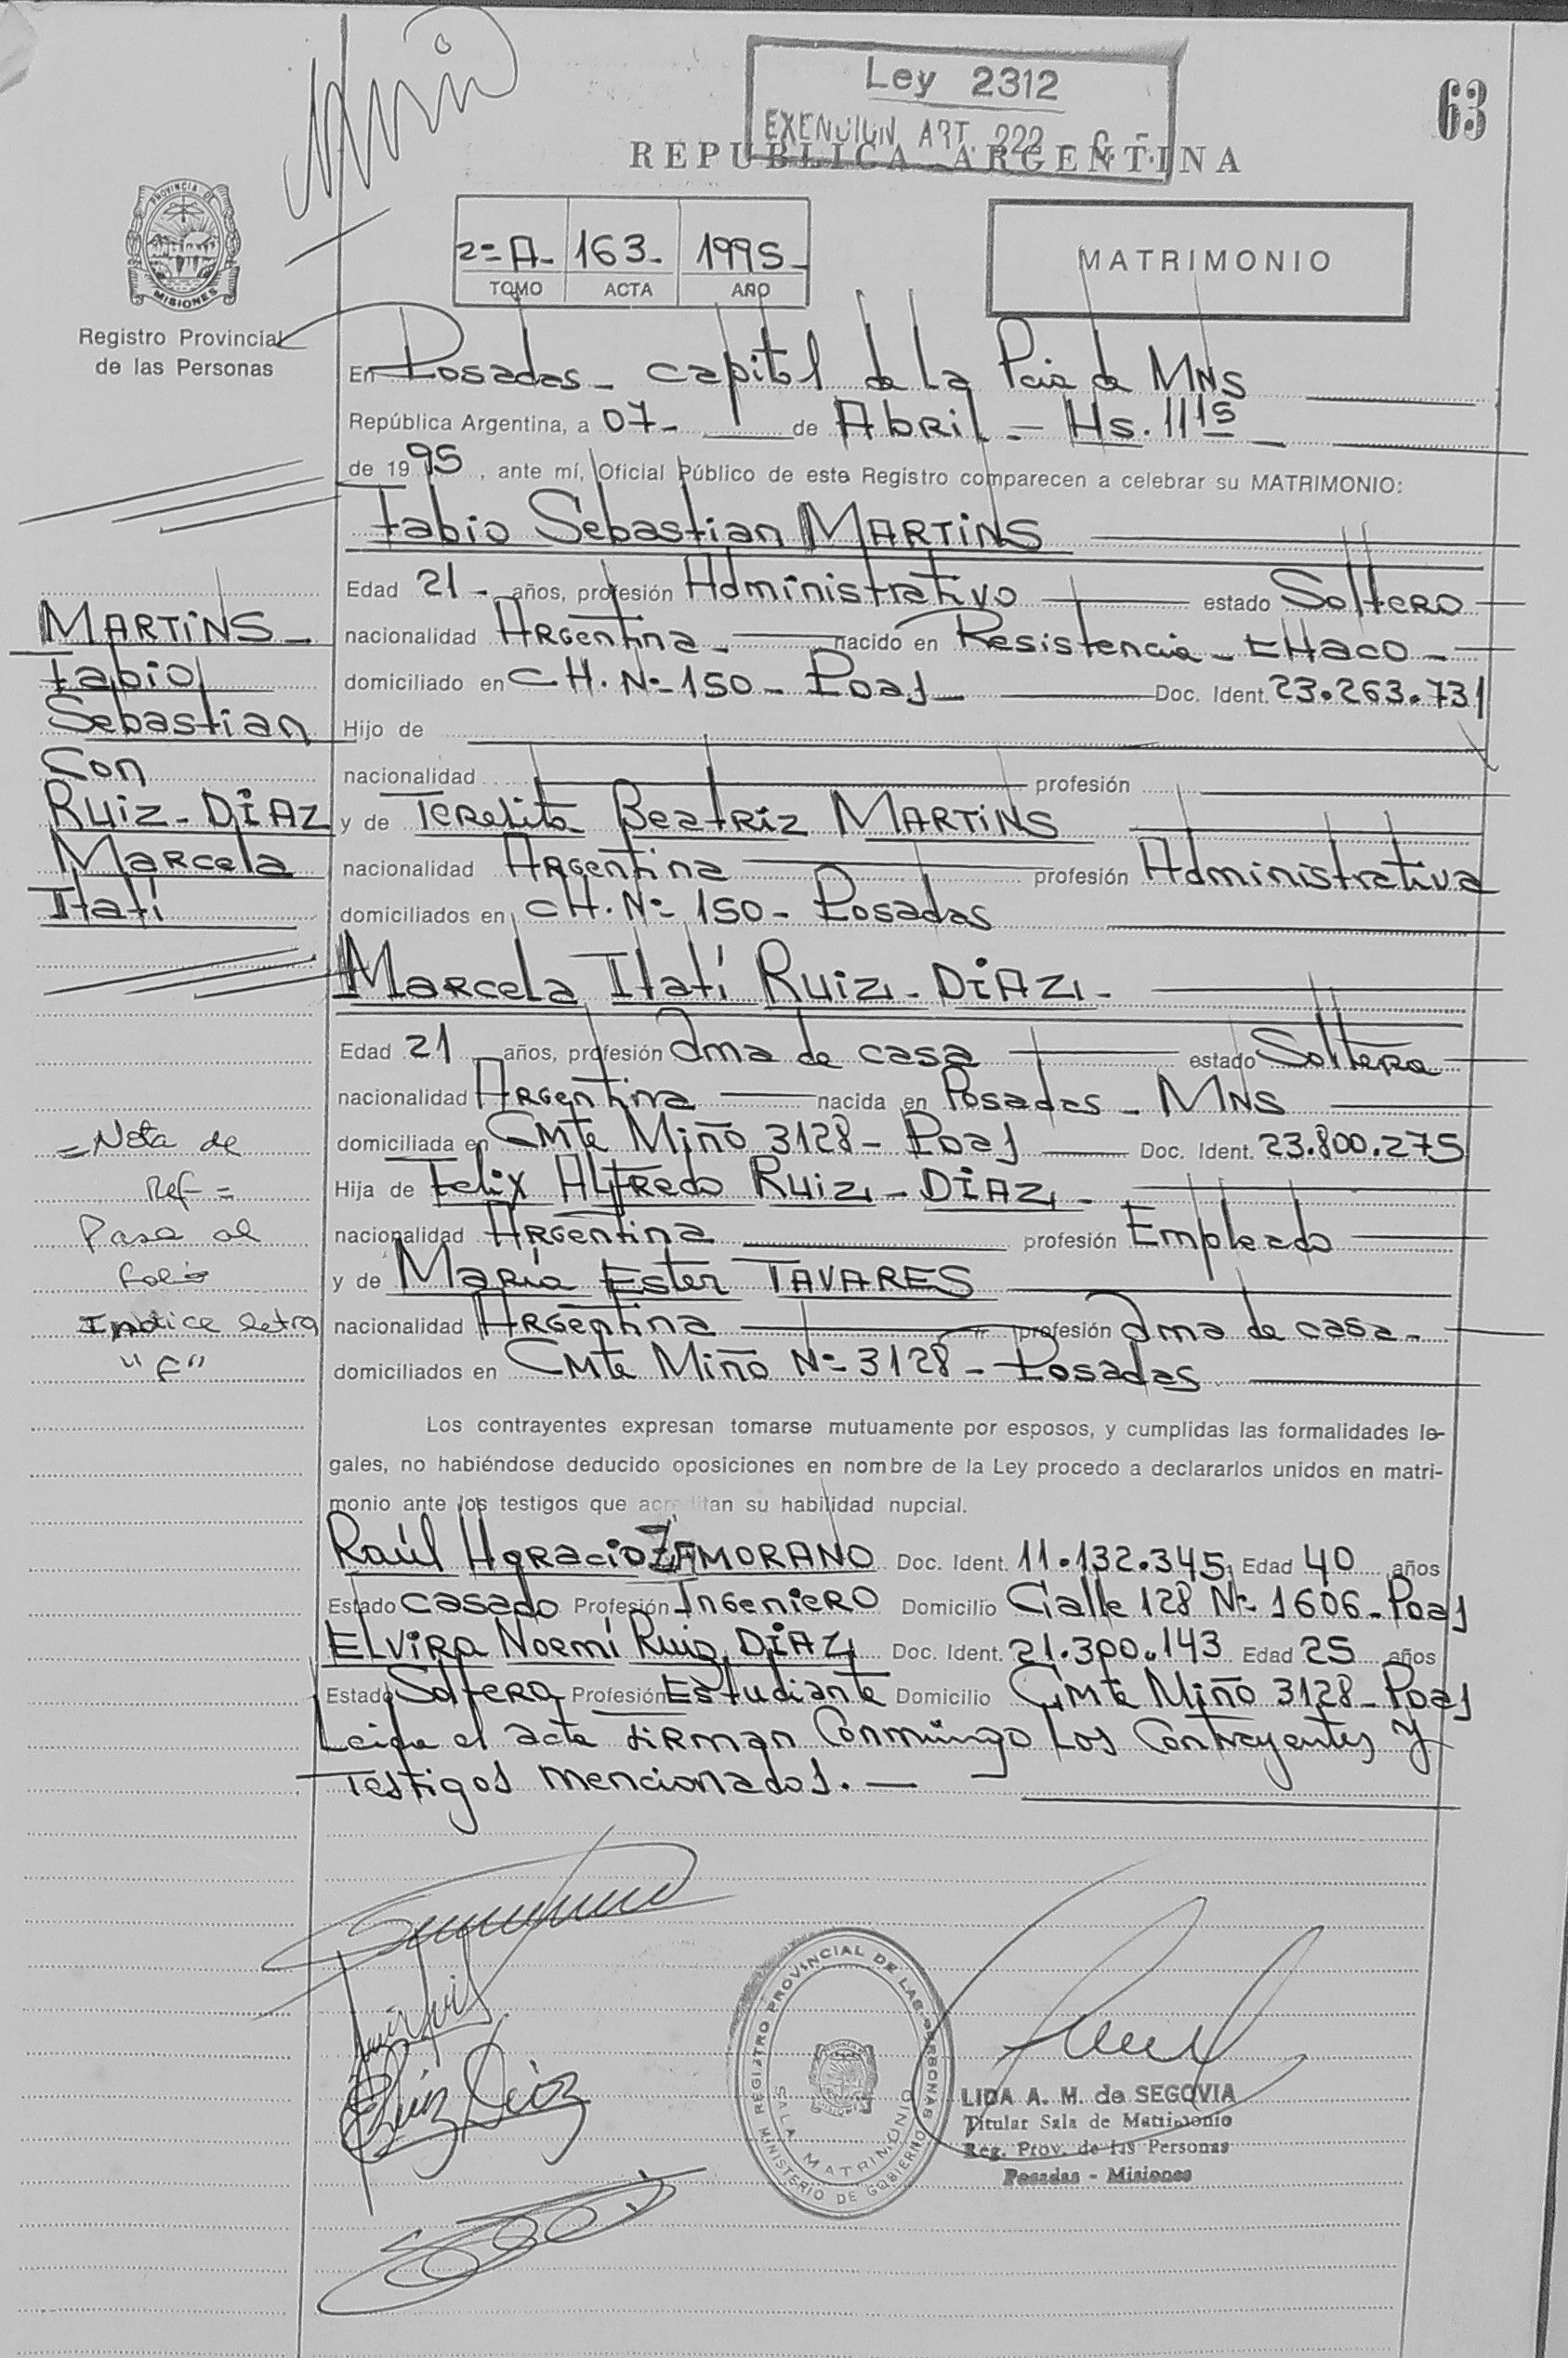 Ley 2312
EXENCION ART. 222
63
REPUBLICA ARGENTINA
PROVINCIA DE
MISIONES
Registro Provincial
de las Personas
2º A- 163- 1995-
TOMO ACTA AÑO
MATRIMONIO
En Posadas - capital de la Pcia de MNS
República Argentina, a 07- de Abril - Hs. 11 15
de 1995, ante mí, Oficial Público de este Registro comparecen a celebrar su MATRIMONIO:
Fabio Sebastian MARTINS
Edad 21- años, profesión Administrativo estado Soltero
nacionalidad Argentina- nacido en Resistencia - CHaco -
domiciliado en CH. Nº 150 - Poas Doc. Ident. 23.263.731
Hijo de
nacionalidad profesión
y de Teresita Beatriz MARTINS
nacionalidad Argentina profesión Administrativa
domiciliados en CH. Nº 150 - Posadas
MARTINS-
Fabio
Sebastian
Con
Ruiz-DIAZ
Marcela
Itatí
Marcela Itatí Ruiz-DIAZ-
Edad 21 años, profesión Ama de casa estado Soltera
nacionalidad Argentina nacida en Posadas - MNS
domiciliada en Cmte Miño 3128 - Poas Doc. Ident. 23.800.275
Hija de Felix Alfredo Ruiz-DIAZ-
nacionalidad Argentina profesión Empleado
y de María Ester TAVARES
nacionalidad Argentina profesión Ama de casa-
domiciliados en Cmte Miño Nº 3128 - Posadas
=Nota de
Ref=
Pasa al
folio
Indice letra
Los contrayentes expresan tomarse mutuamente por esposos, y cumplidas las formalidades le-
gales, no habiéndose deducido oposiciones en nombre de la Ley procedo a declararlos unidos en matri-
monio ante los testigos que acreditan su habilidad nupcial.
Raúl Horacio ZAMORANO Doc. Ident. 11.132.345, Edad 40 años
Estado casado Profesión Ingeniero Domicilio Calle 128 Nº 1606-Poas
ELVIRA Noemí Ruiz DIAZ Doc. Ident. 21.300.143 Edad 25 años
Estado Soltera Profesión Estudiante Domicilio Cmte Miño 3128-Poas
Leida el acta firman Conmingo Los Contrayentes y
Testigos mencionados.-
Ruiz Diaz
REGISTRO PROVINCIAL DE LAS PERSONAS
SALA MATRIMONIO
MINISTERIO DE GOBIERNO
LIDA A. M. de SEGOVIA
Titular Sala de Matrimonio
Reg. Prov. de las Personas
Posadas - Misiones